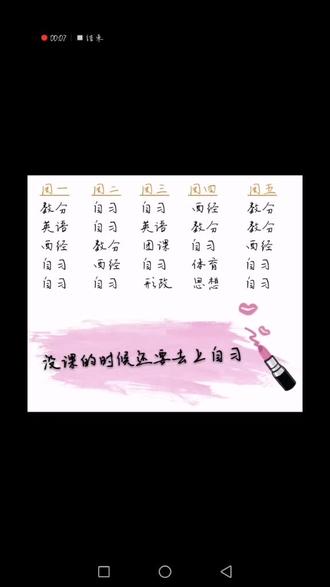 00:07 结束
周一 周二 周三 周四 周五
数分 自习 自习 西经 数分
英语 自习 英语 数分 数分
西经 数分 团课 自习 西经
自习 西经 自习 体育 自习
自习 自习 形政 思想 自习
没课的时候还要去上自习